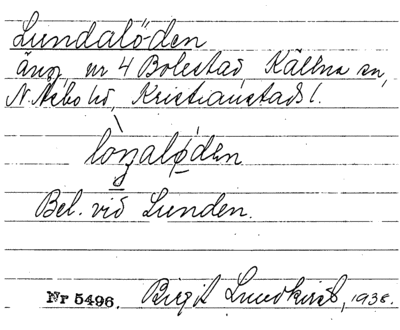 Lundalöden
äng, nr 4 Bolestad, Källna sn,
N. Åsbo hd, Kristianstads l.
Bel. vid Lunden.
Nr 5496. Birgit Lundkvist, 1938.